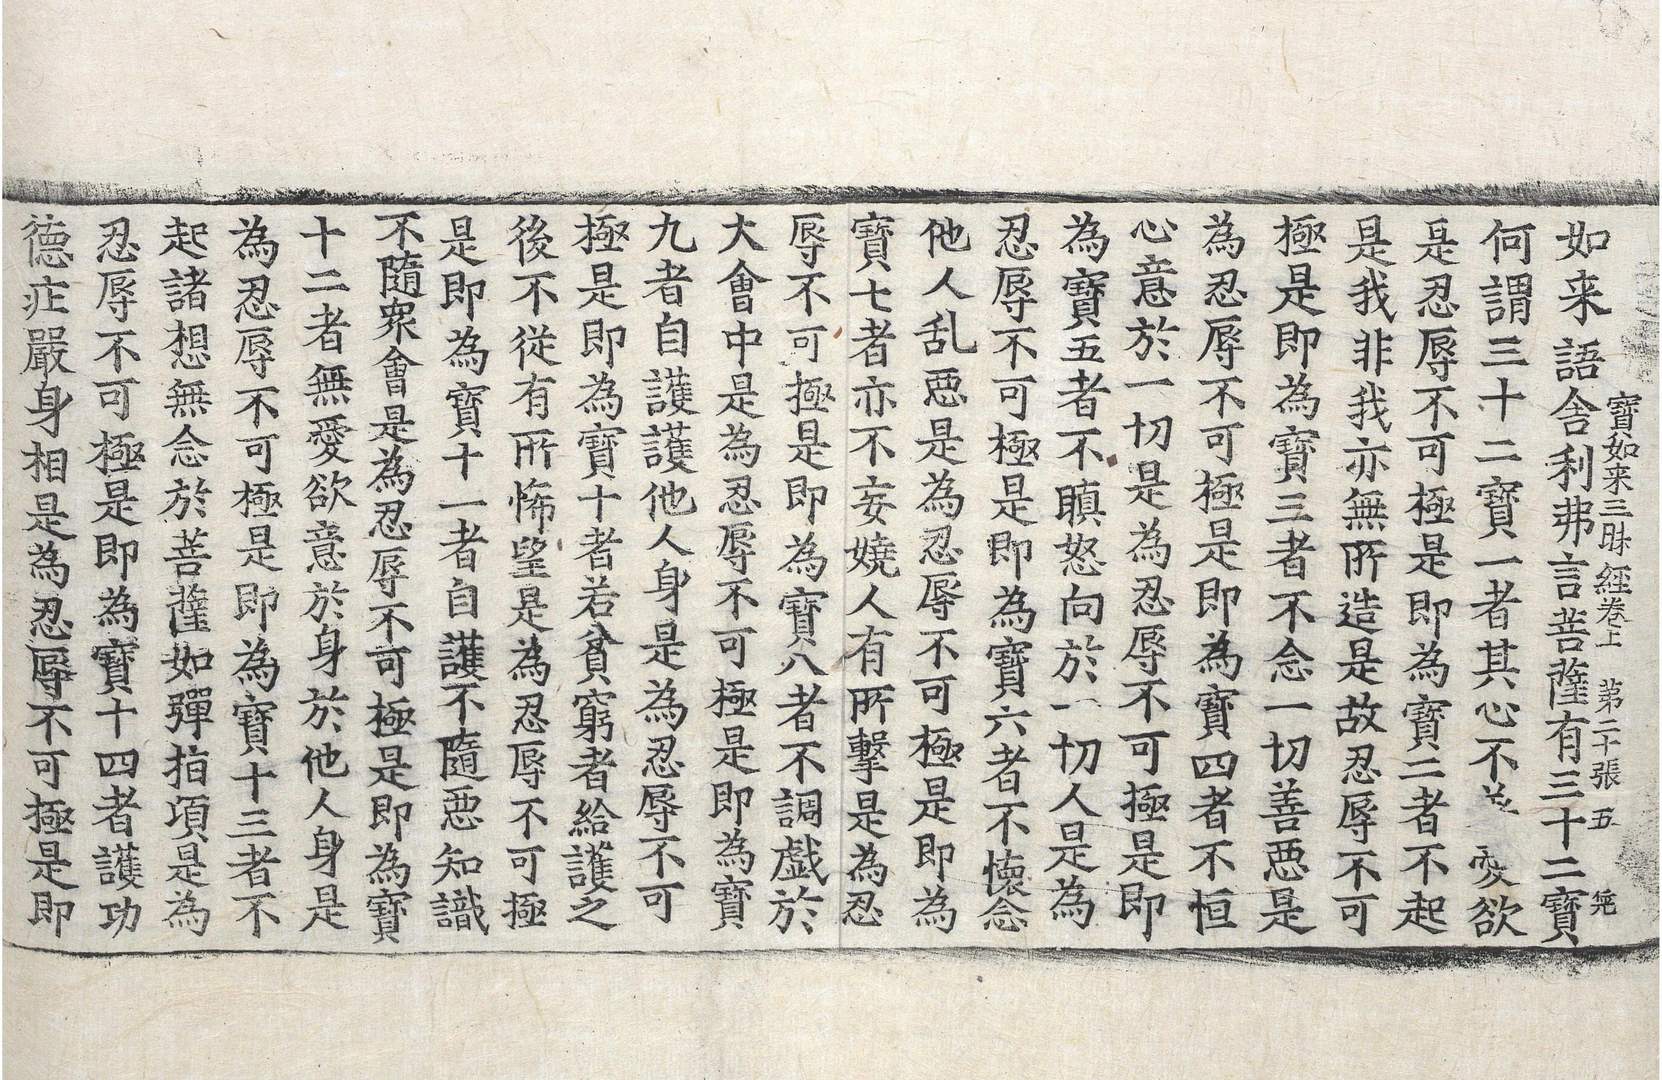 寶如来三昧経卷上　第二十張　五
如来語舎利弗言菩薩有三十二寶
何謂三十二寶一者其心不愛欲
是忍辱不可極是即為寶二者不起
是我非我亦無所造是故忍辱不可
極是即為寶三者不念一切善惡是
為忍辱不可極是即為寶四者不恒
心意於一切是為忍辱不可極是即
為寶五者不瞋怒向於一切人是為
忍辱不可極是即為寶六者不懷念
他人乱惡是為忍辱不可極是即為
寶七者亦不妄嬈人有所擊是為忍
辱不可極是即為寶八者不調戲於
大會中是為忍辱不可極是即為寶
九者自護護他人身是為忍辱不可
極是即為寶十者若貧窮者給護之
後不從有所悕望是為忍辱不可極
是即為寶十一者自護不隨惡知識
不隨衆會是為忍辱不可極是即為寶
十二者無愛欲意於身於他人身是
為忍辱不可極是即為寶十三者不
起諸想無念於菩薩如彈指項是為
忍辱不可極是即為寶十四者護功
德庄嚴身相是為忍辱不可極是即